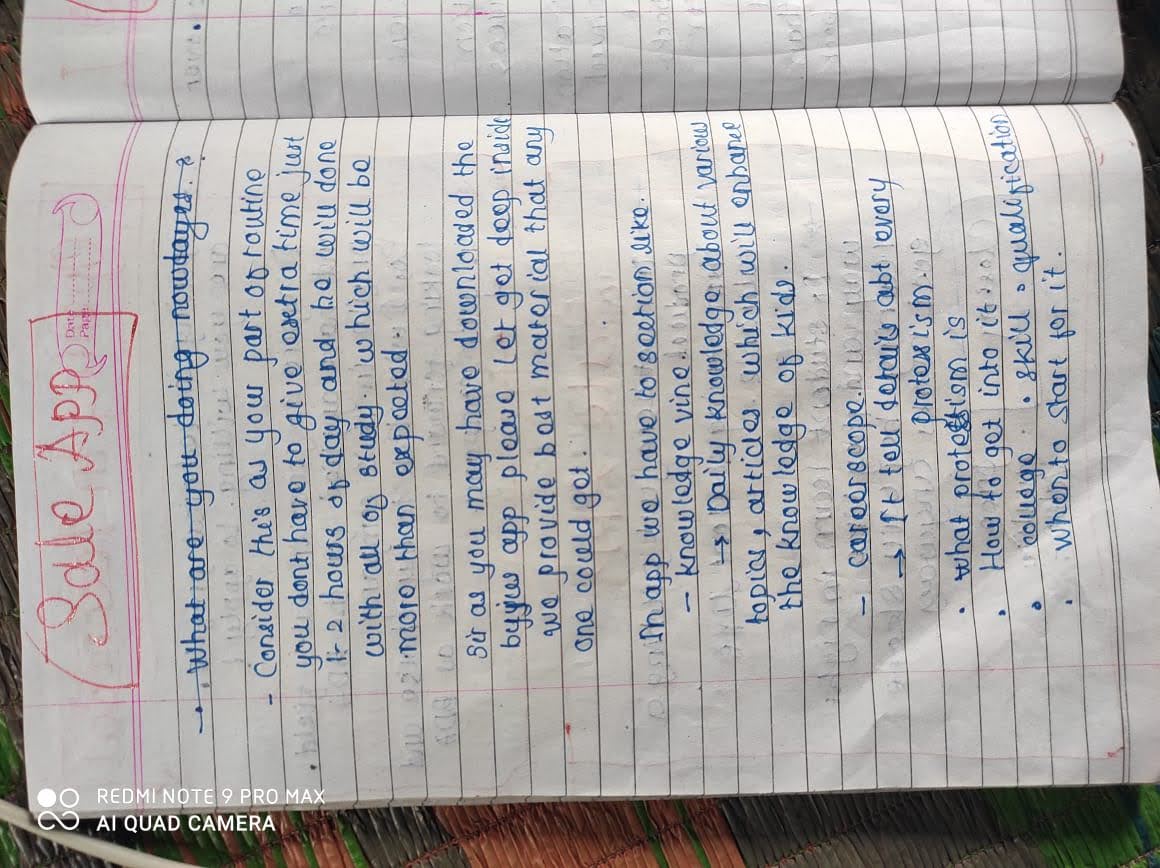 Sale App
Date
Page
→ . What are you doing nowdayes. ?
- Consider this as your part of routine
you dont have to give exetra time just
1-2 hours of day and he will done
with all of study. which will be
more than expected.
Sir as you may have downloaded the
byjus app please let get deep inside
we provide best material that any
one could get.
In app we have to section like.
- knowledge vine.
→ Daily knowledge about various
topics, articles which will enhance
the knowledge of kids.
- careerscope.
→ It tell details abt every
protessism.
• what protesstism is
• How to get into it.
• college • skill • qualification
• when to start for it.
REDMI NOTE 9 PRO MAX
AI QUAD CAMERA